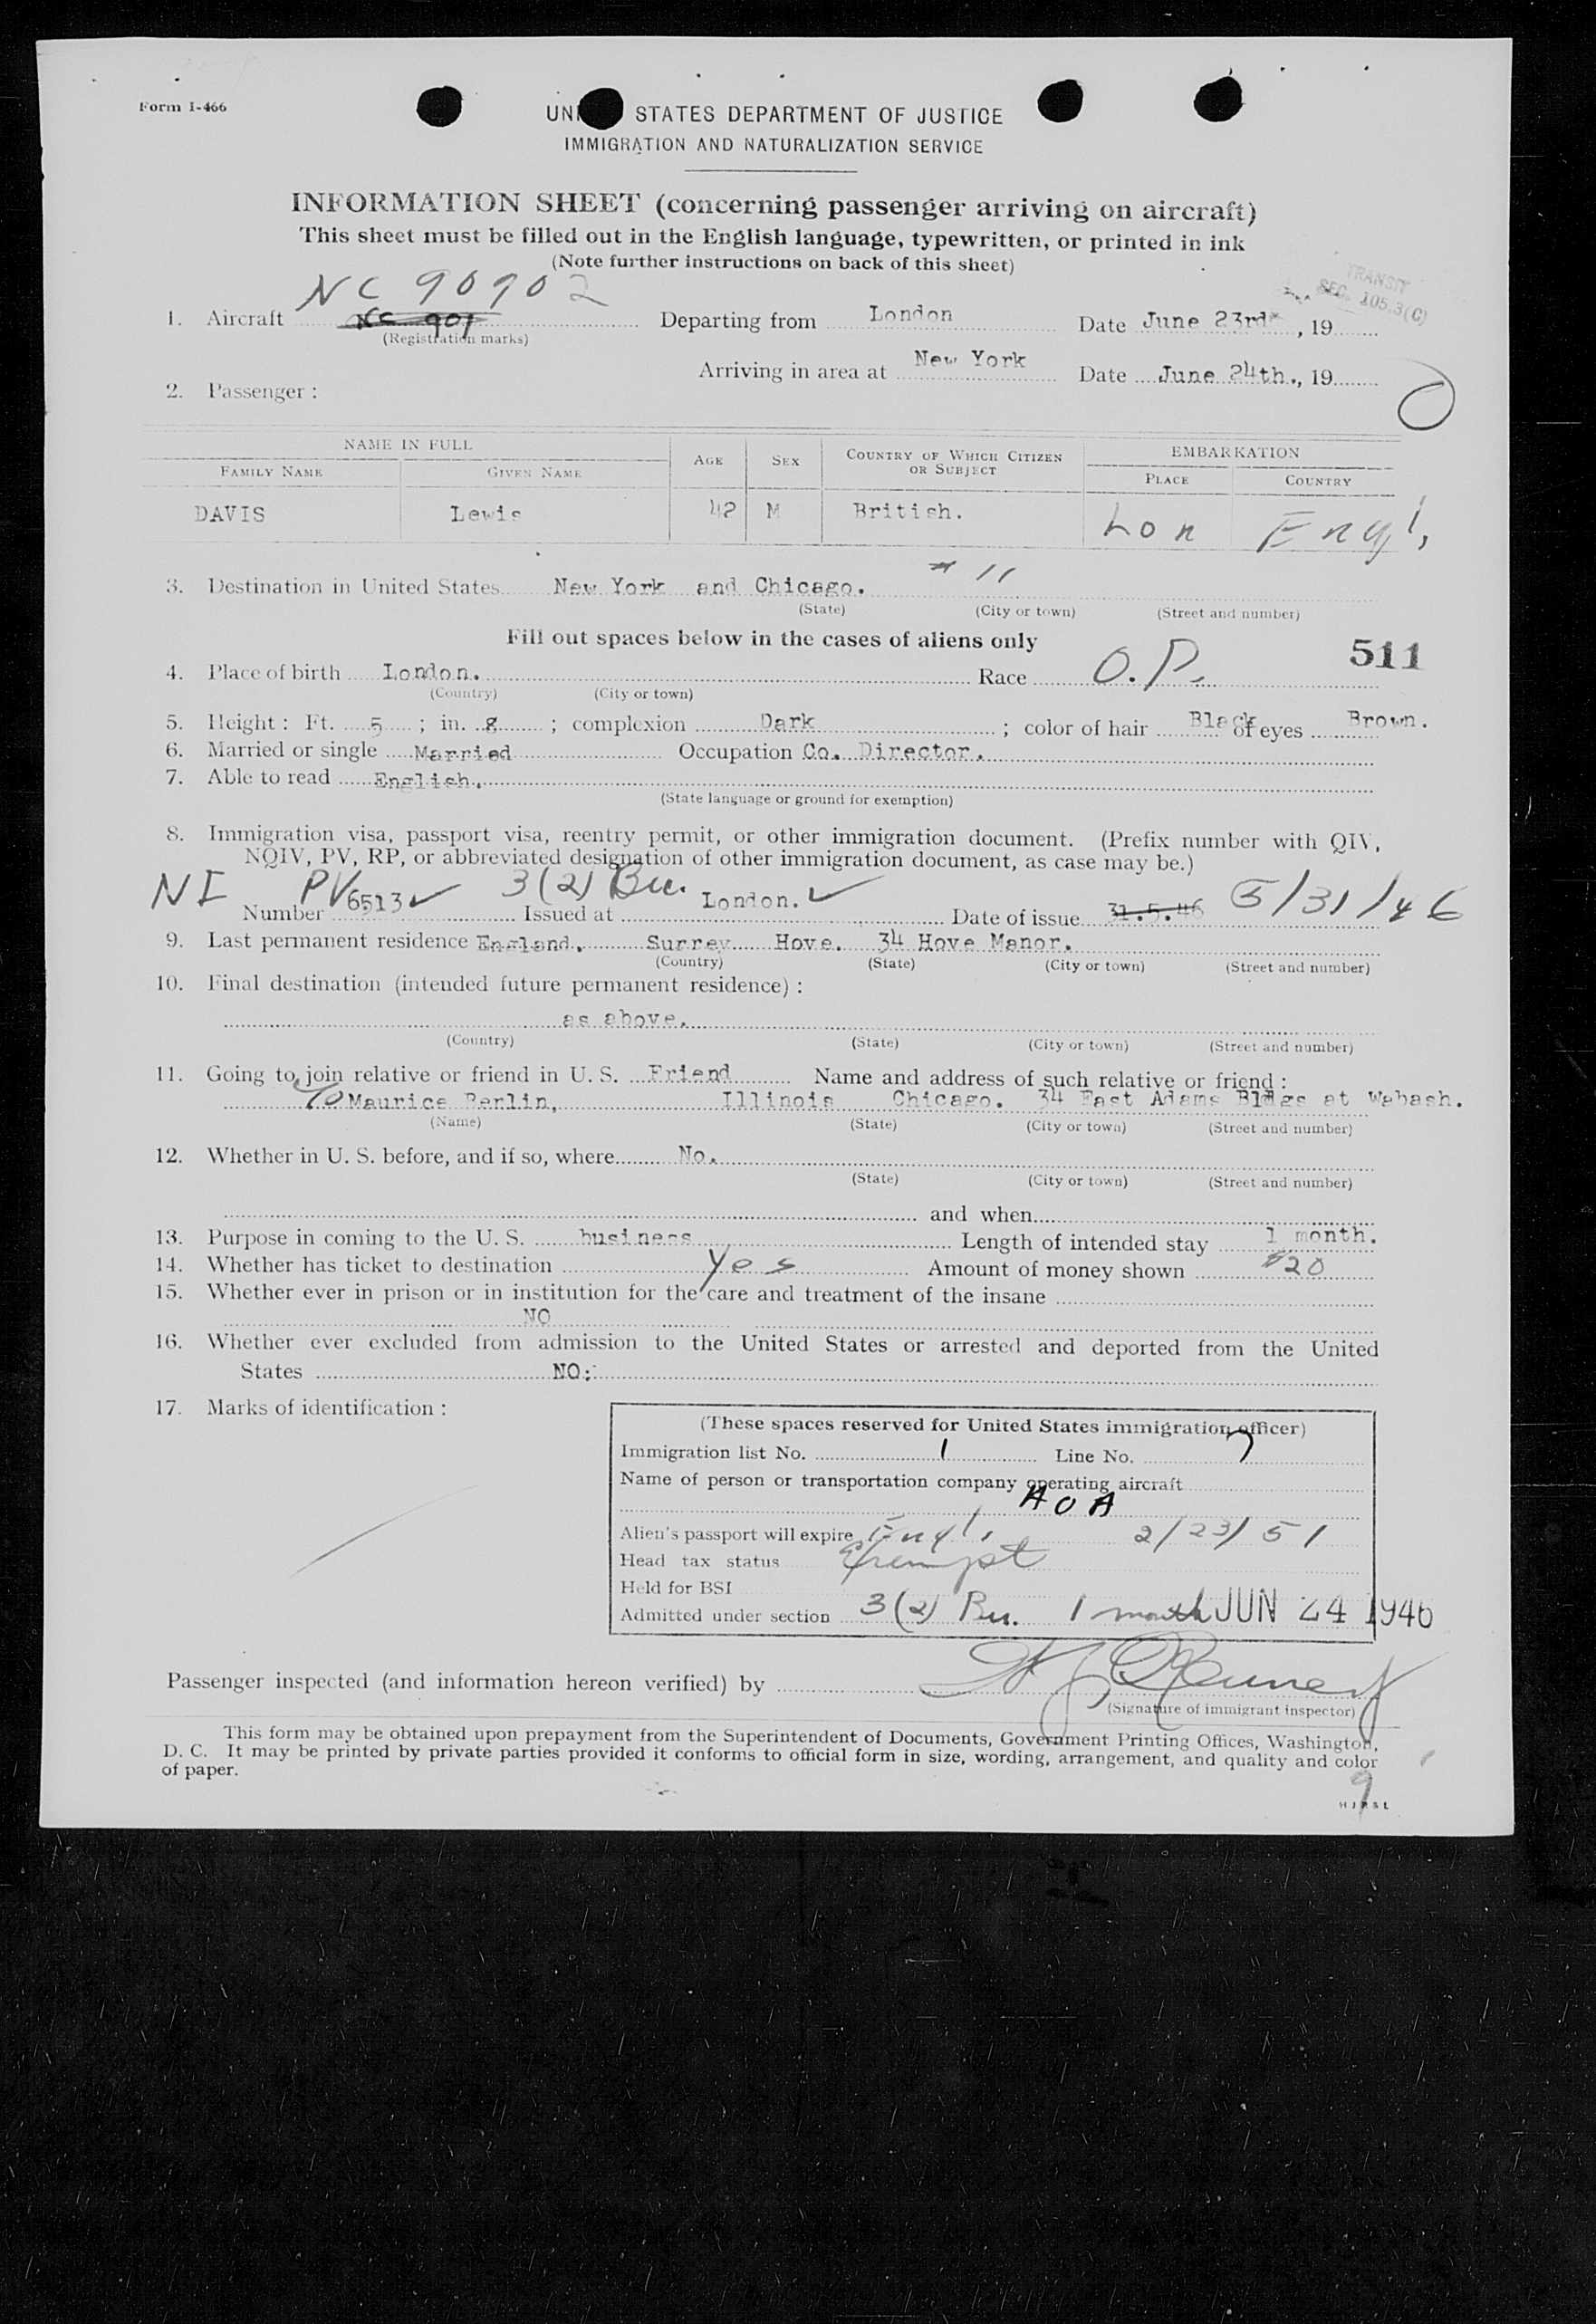 Form I-466
UNI STATES DEPARTMENT OF JUSTICE
IMMIGRATION AND NATURALIZATION SERVICE
INFORMATION SHEET (concerning passenger arriving on aircraft)
This sheet must be filled out in the English language, typewritten, or printed in ink
(Note further instructions on back of this sheet)
NC 90902
TRANSIT
SEC. 105.3(C)
1. Aircraft NC 901 Departing from London Date June 23rd, 19
(Registration marks)
Arriving in area at New York Date June 24th., 19
2. Passenger :
NAME IN FULL
FAMILY NAME GIVEN NAME AGE SEX COUNTRY OF WHICH CITIZEN OR SUBJECT EMBARKATION
PLACE COUNTRY
DAVIS Lewis 42 M British. Lon Engl,
# 11
3. Destination in United States New York and Chicago.
(State) (City or town) (Street and number)
Fill out spaces below in the cases of aliens only
511
4. Place of birth London. Race O.P.
(Country) (City or town)
5. Height : Ft. 5 ; in. 8 ; complexion Dark ; color of hair Black of eyes Brown.
6. Married or single Married Occupation Co. Director.
7. Able to read English.
(State language or ground for exemption)
8. Immigration visa, passport visa, reentry permit, or other immigration document. (Prefix number with QIV,
NQIV, PV, RP, or abbreviated designation of other immigration document, as case may be.)
NI PV 3(2) Bu.
Number 6513 Issued at London. Date of issue 31.5.46 5/31/46
9. Last permanent residence England. Surrey Hove. 34 Hove Manor.
(Country) (State) (City or town) (Street and number)
10. Final destination (intended future permanent residence) :
as above.
(Country) (State) (City or town) (Street and number)
11. Going to join relative or friend in U. S. Friend Name and address of such relative or friend :
To Maurice Perlin, Illinois Chicago. 34 East Adams Bldgs at Wabash.
(Name) (State) (City or town) (Street and number)
12. Whether in U. S. before, and if so, where No.
(State) (City or town) (Street and number)
and when
13. Purpose in coming to the U. S. business Length of intended stay 1 month.
14. Whether has ticket to destination Yes Amount of money shown $20
15. Whether ever in prison or in institution for the care and treatment of the insane
NO
16. Whether ever excluded from admission to the United States or arrested and deported from the United
States NO:
17. Marks of identification :
(These spaces reserved for United States immigration officer)
Immigration list No. 1 Line No. 7
Name of person or transportation company operating aircraft
AOA
Alien's passport will expire Engl, 2/23/51
Head tax status Exempt
Held for BSI
Admitted under section 3(2) Bu. 1 month JUN 24 1946
Passenger inspected (and information hereon verified) by
(Signature of immigrant inspector)
This form may be obtained upon prepayment from the Superintendent of Documents, Government Printing Offices, Washington,
D. C. It may be printed by private parties provided it conforms to official form in size, wording, arrangement, and quality and color
of paper.
9